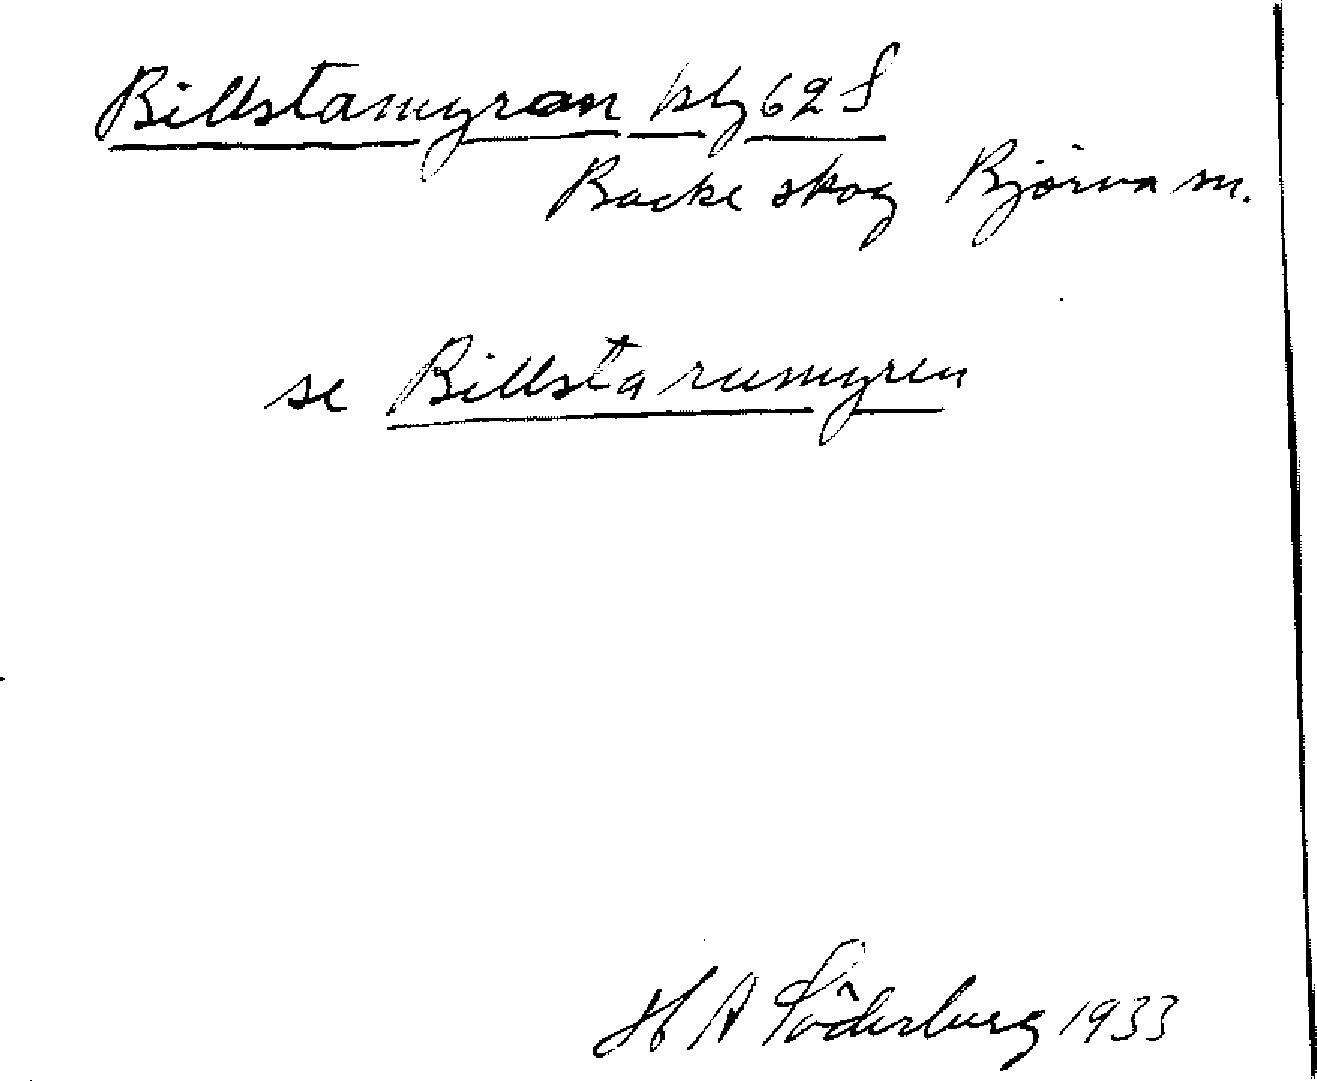 Billstamyran kbg 62 S
Backe skog Björna sn.
se Billstarumyren
H A Söderberg 1933